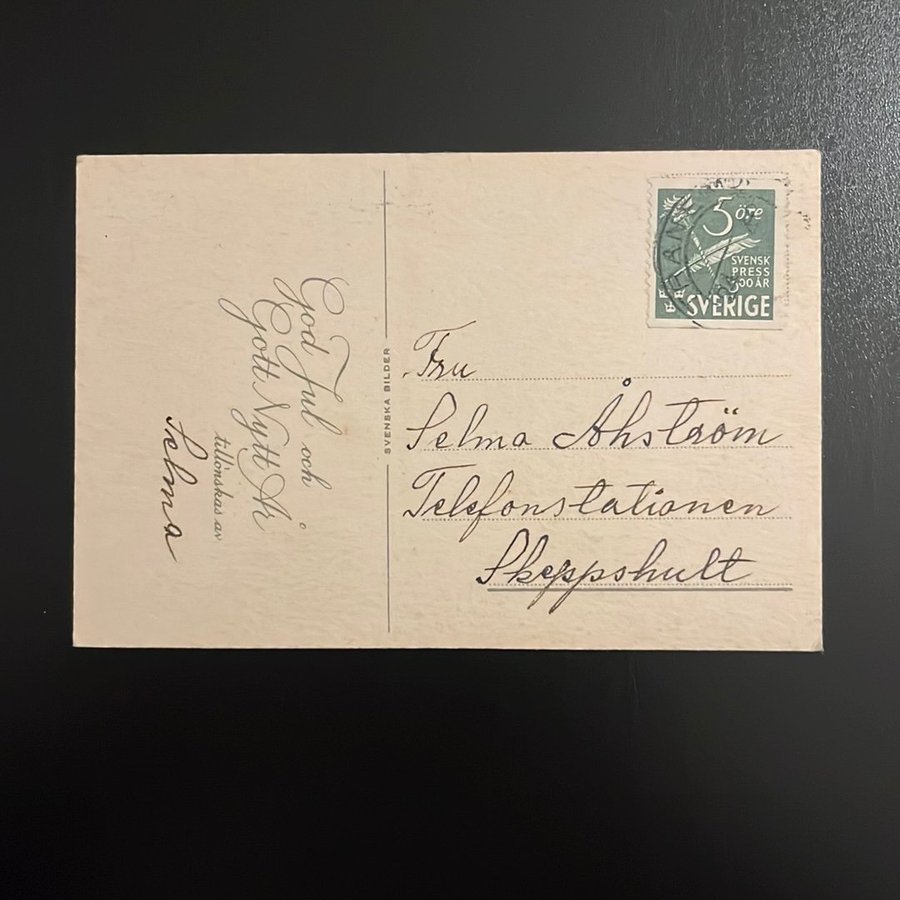 God Jul och
Ett
Gott Nytt År
tillönskas av
Selma
SVENSKA BILDER
5 öre
SVENSK
PRESS
300 ÅR
SVERIGE
Fru
Selma Åhström
Telefonstationen
Skeppshult